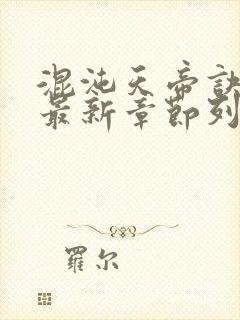 混沌天帝訣
最新章節列
羅尔